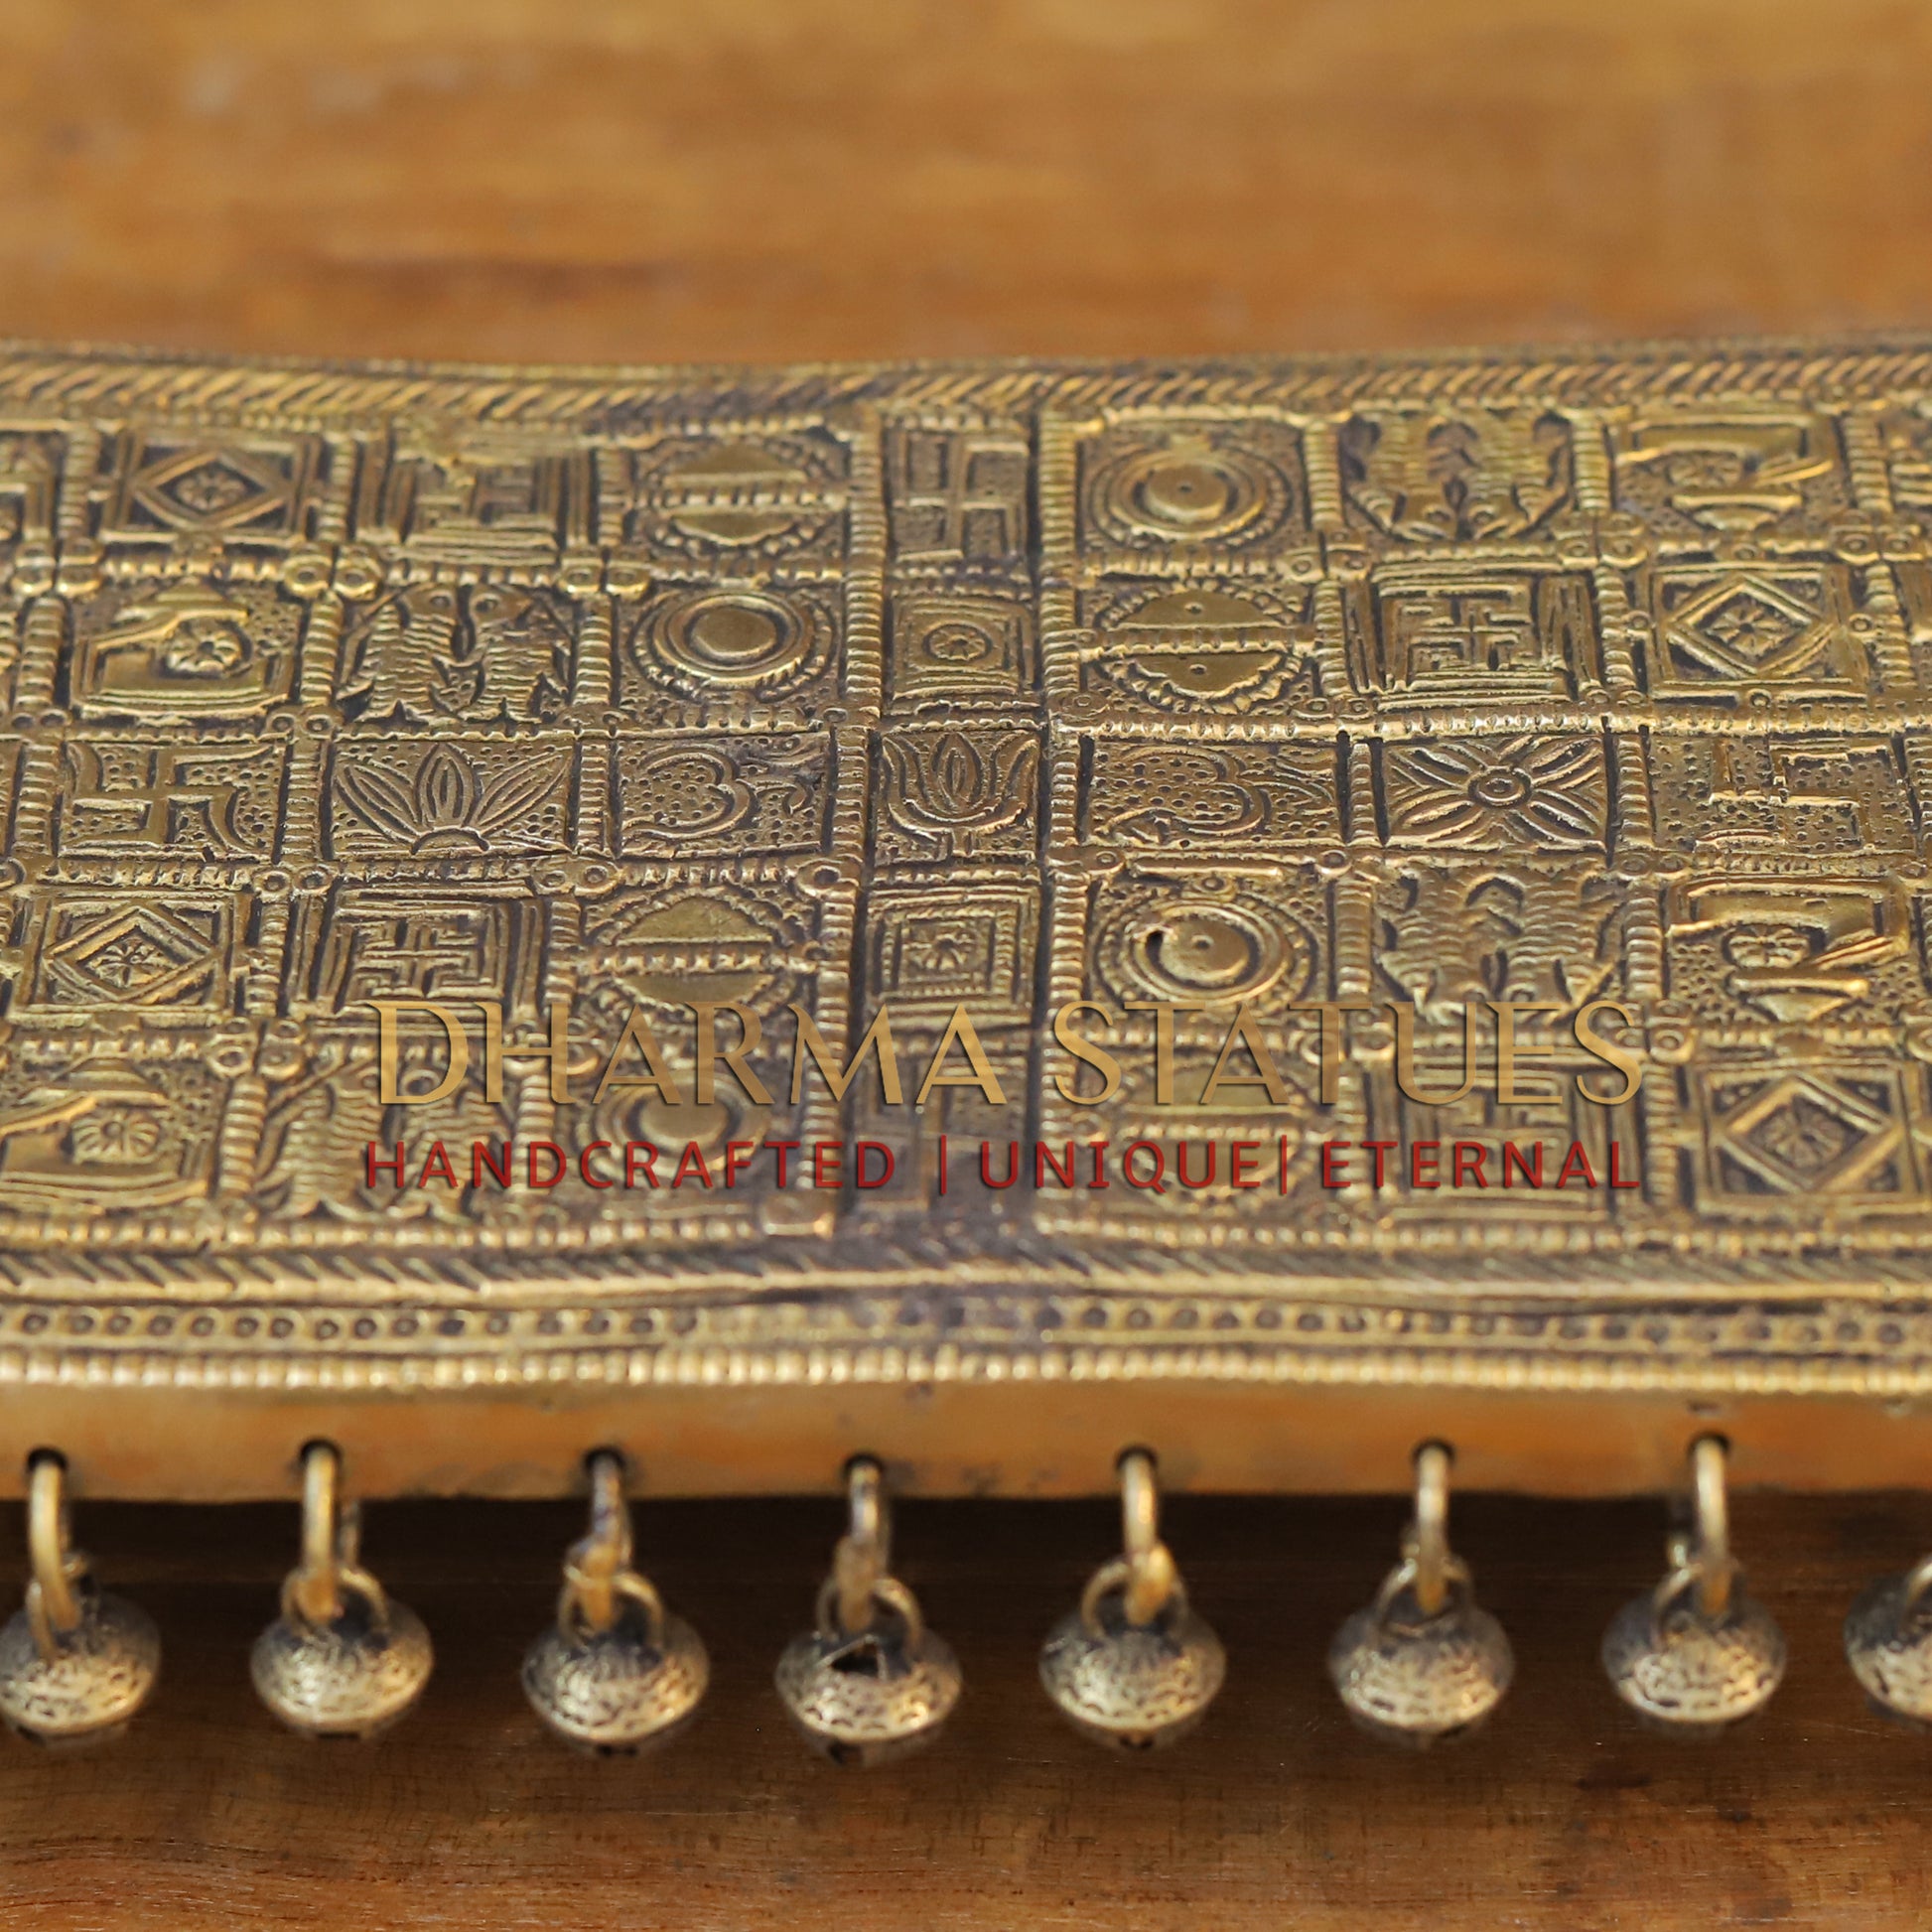 DHARMA STATUES
HANDCRAFTED | UNIQUE | ETERNAL